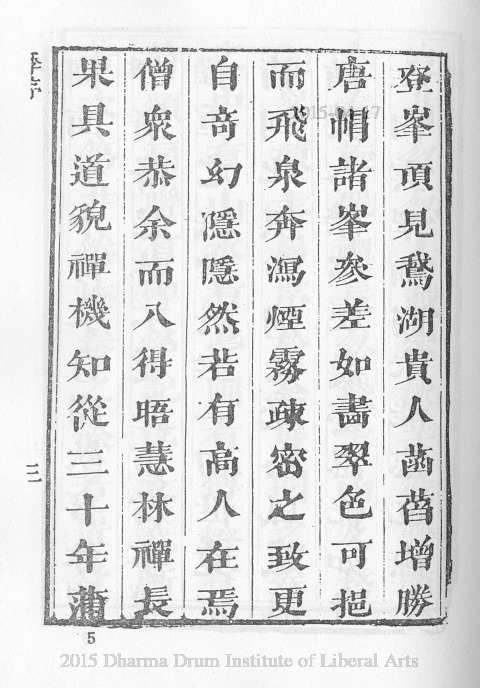 登峯頂見鵞湖貴人菡萏增勝
唐帽諸峯參差如畵翠色可挹
而飛泉奔瀉煙霧疎密之致更
自奇幻隱隱然若有高人在焉
僧衆恭余而入得晤慧林禪長
果具道貌禪機知從三十年蒲
三
5
2015 Dharma Drum Institute of Liberal Arts